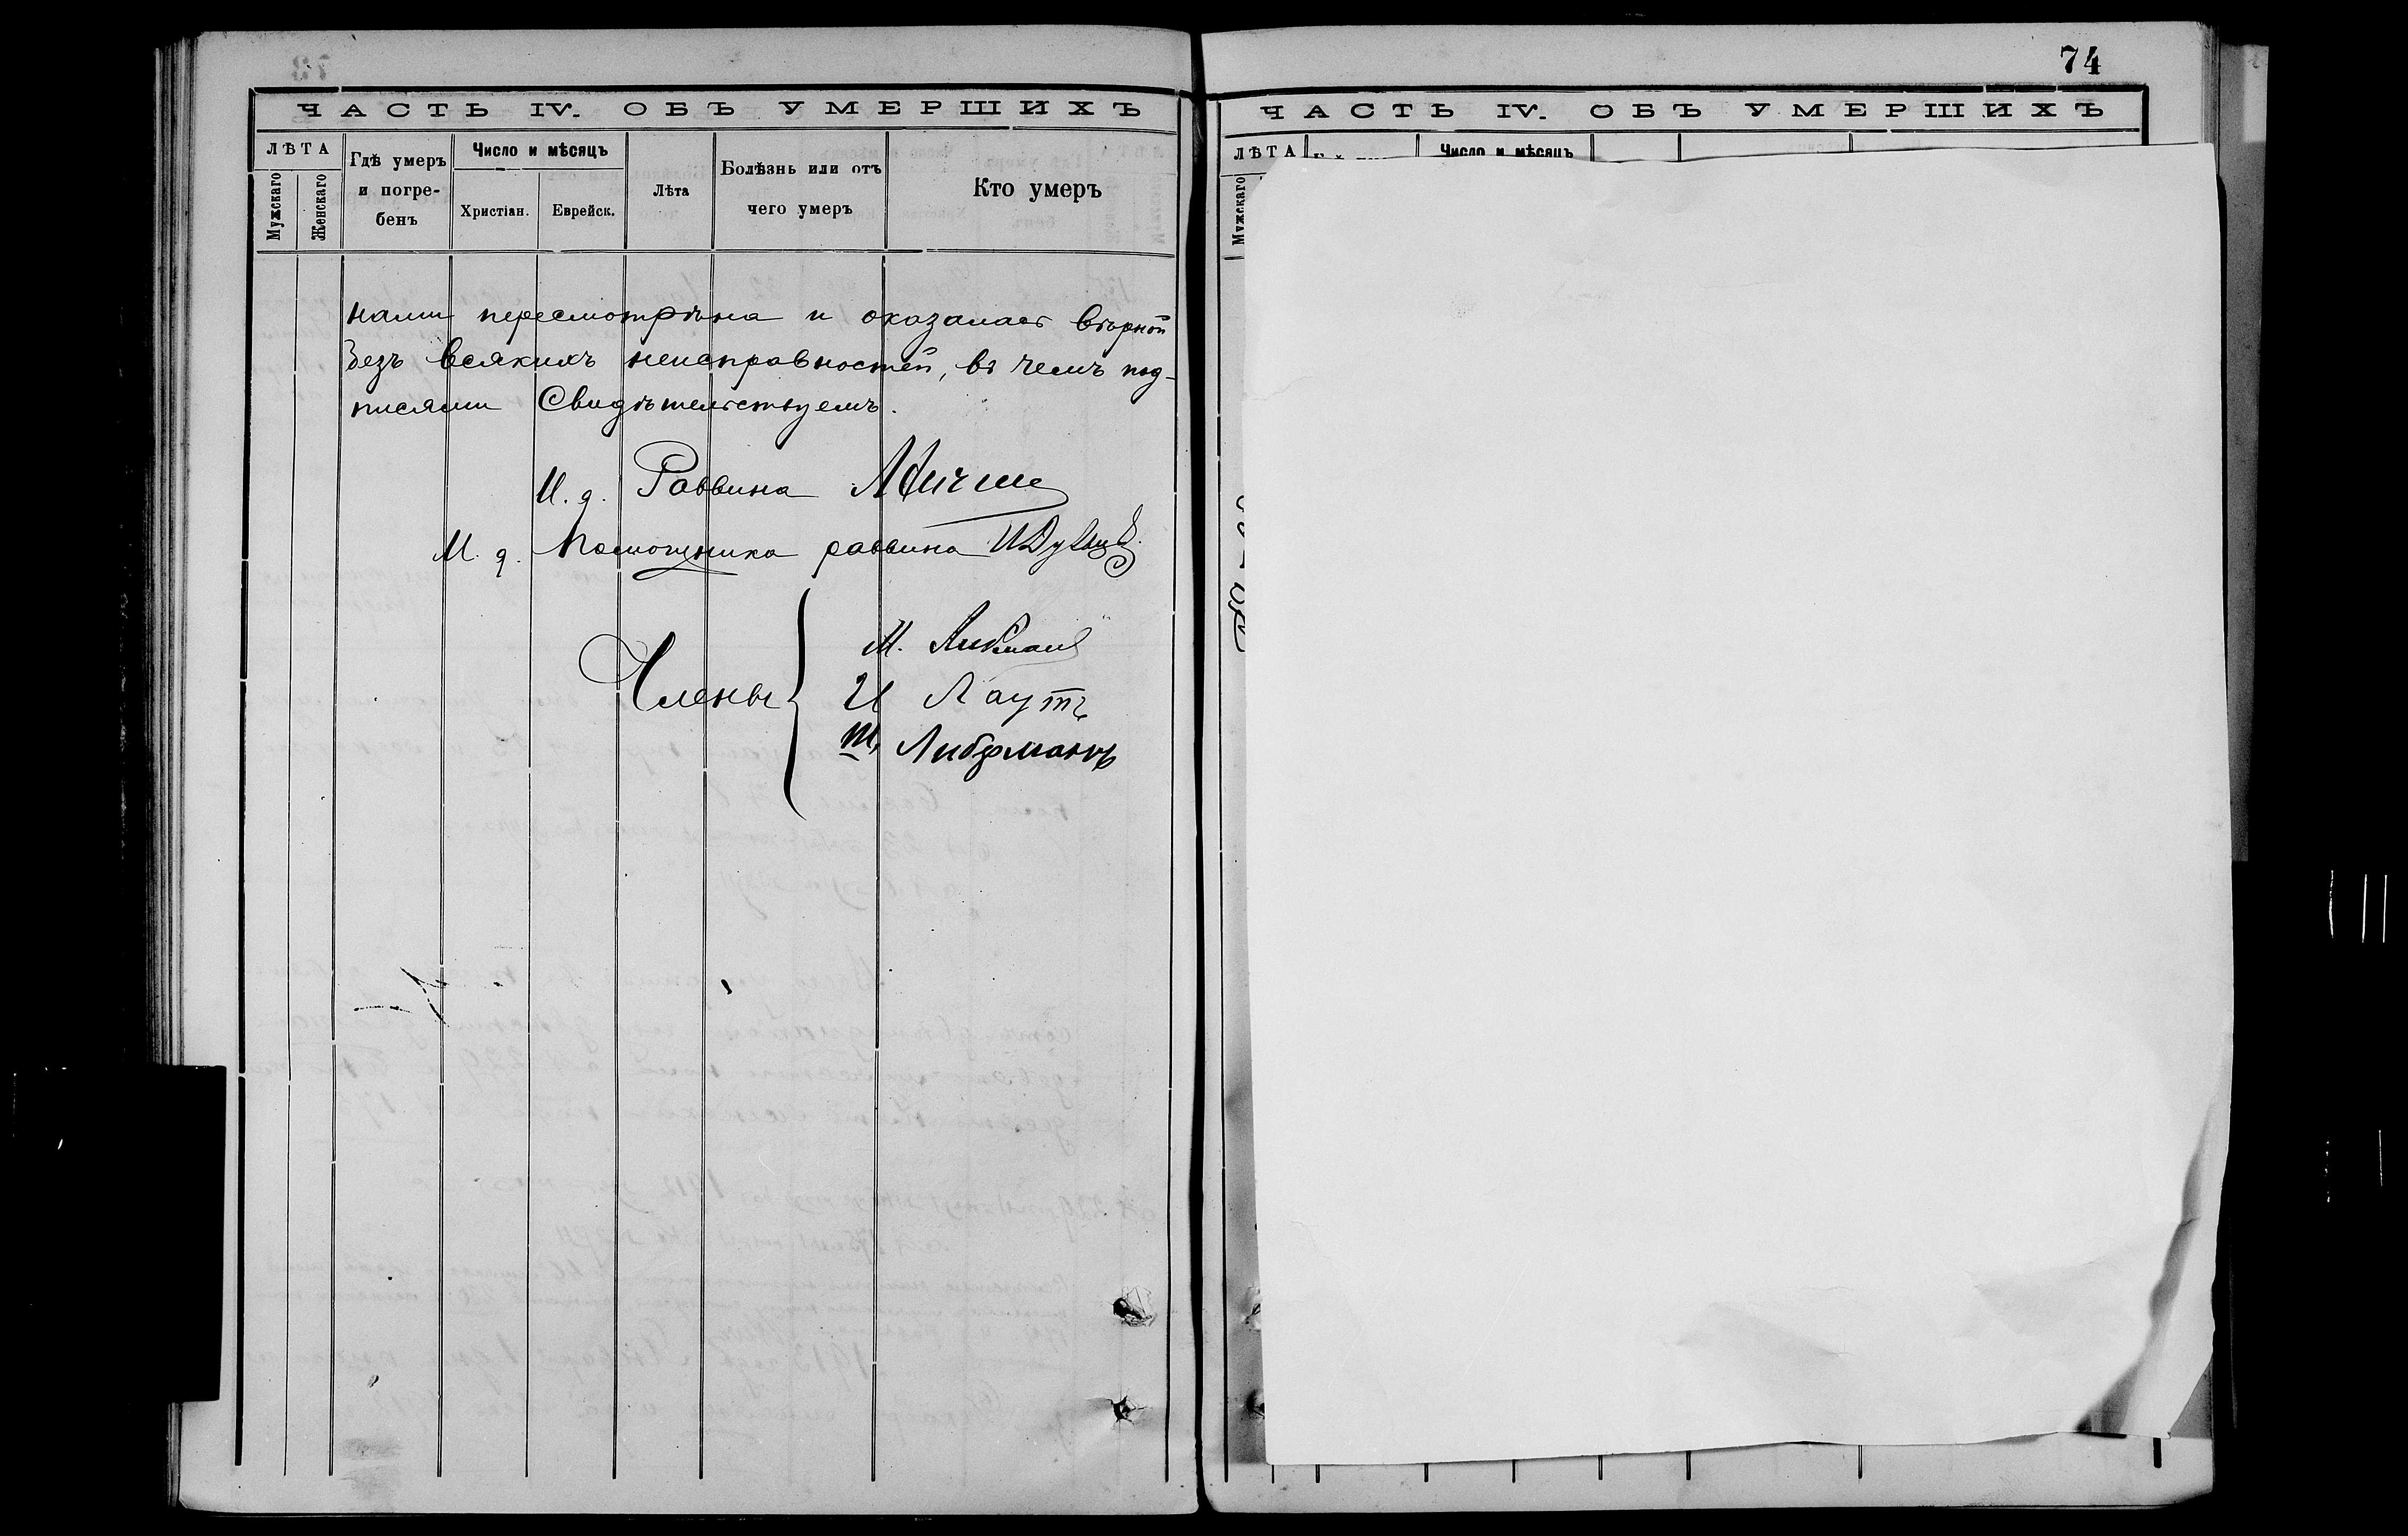 74
ЧАСТЬ IV. ОБЪ УМЕРШИХЪ
ЛѢТА
Мужскаго
Женскаго
Гдѣ умеръ
и погре-
бенъ
Число и мѣсяцъ
Христіан.
Еврейск.
Лѣта
Болѣзнь или отъ
чего умеръ
Кто умеръ
нами пересмотрѣна и оказалась вѣрной
безъ всякихъ неисправностей, въ чемъ под-
писями Свидѣтельствуемъ.
И. д. Раввина
И. д. Помощника раввина
Члены
М.
И Лаутъ
Ш. Либерманъ
ЧАСТЬ IV. ОБЪ УМЕРШИХЪ
ЛѢТА
Число и мѣсяцъ
Мужскаго